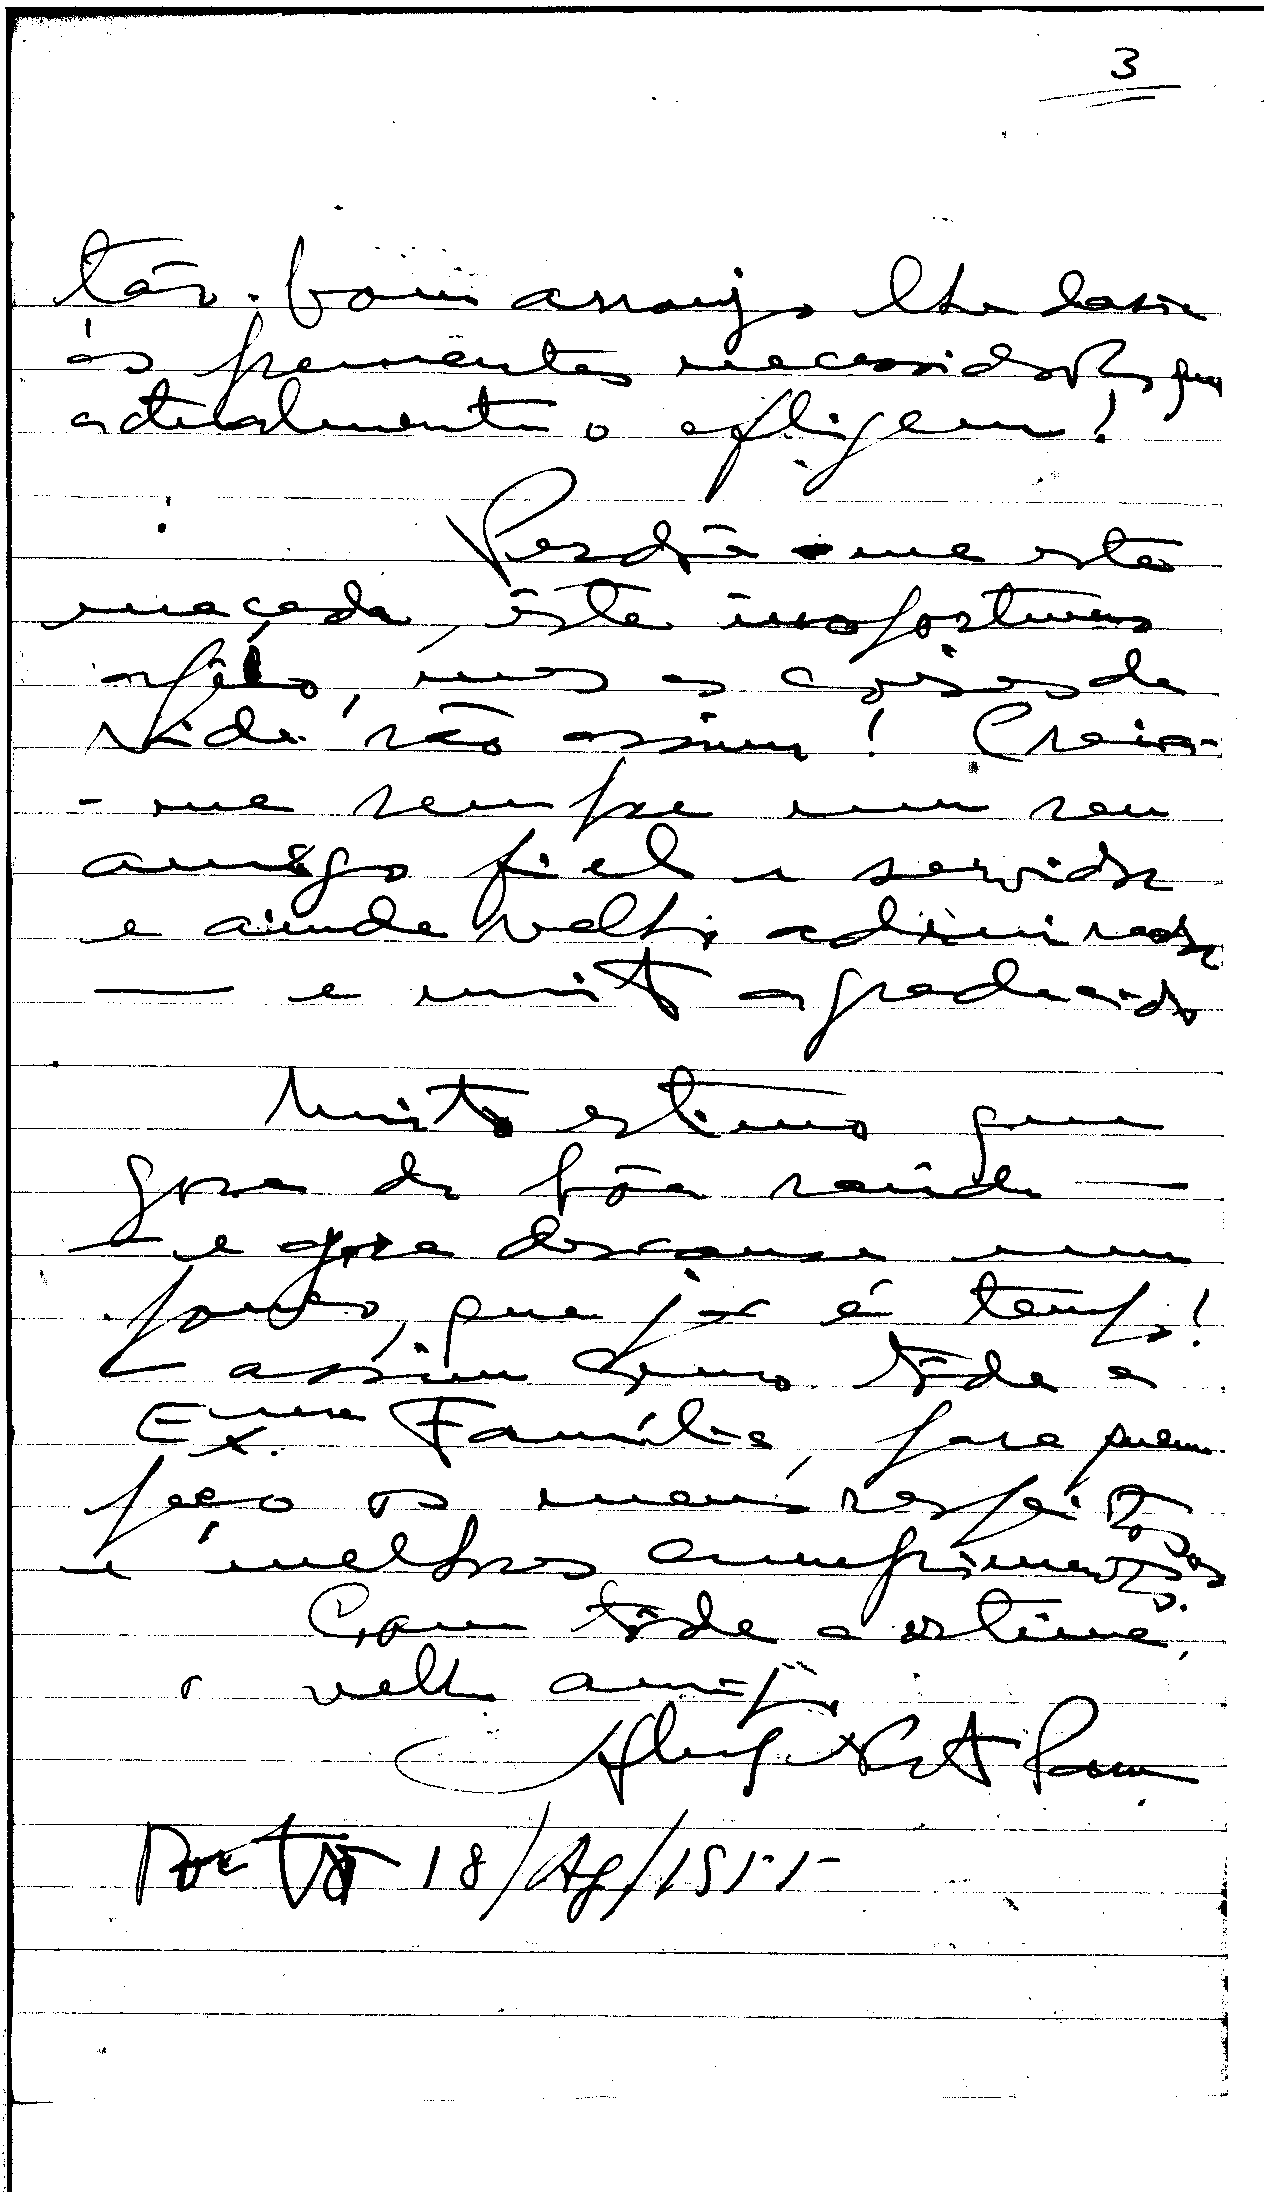 3
tão bom arranjo lhe daria
às prementes necessidades que
actualmente o afligem!
Perdôe-me esta
maçada, êste inoportuno
mas as coisas da
vida são assim! Creia-
-me sempre um seu
amigo fiel e servidor
e ainda velho admirador
— e muito agradecido
Muito estimo que
goze de bôa saúde —
— e que descanse um
pouco, que já é tempo!
— assim como tôda a
Exma. Família, para quem
peço os meus respeitosos
e melhores cumprimentos.
Com tôda a estima,
o velho amigo
Porto 18/Ag/1955